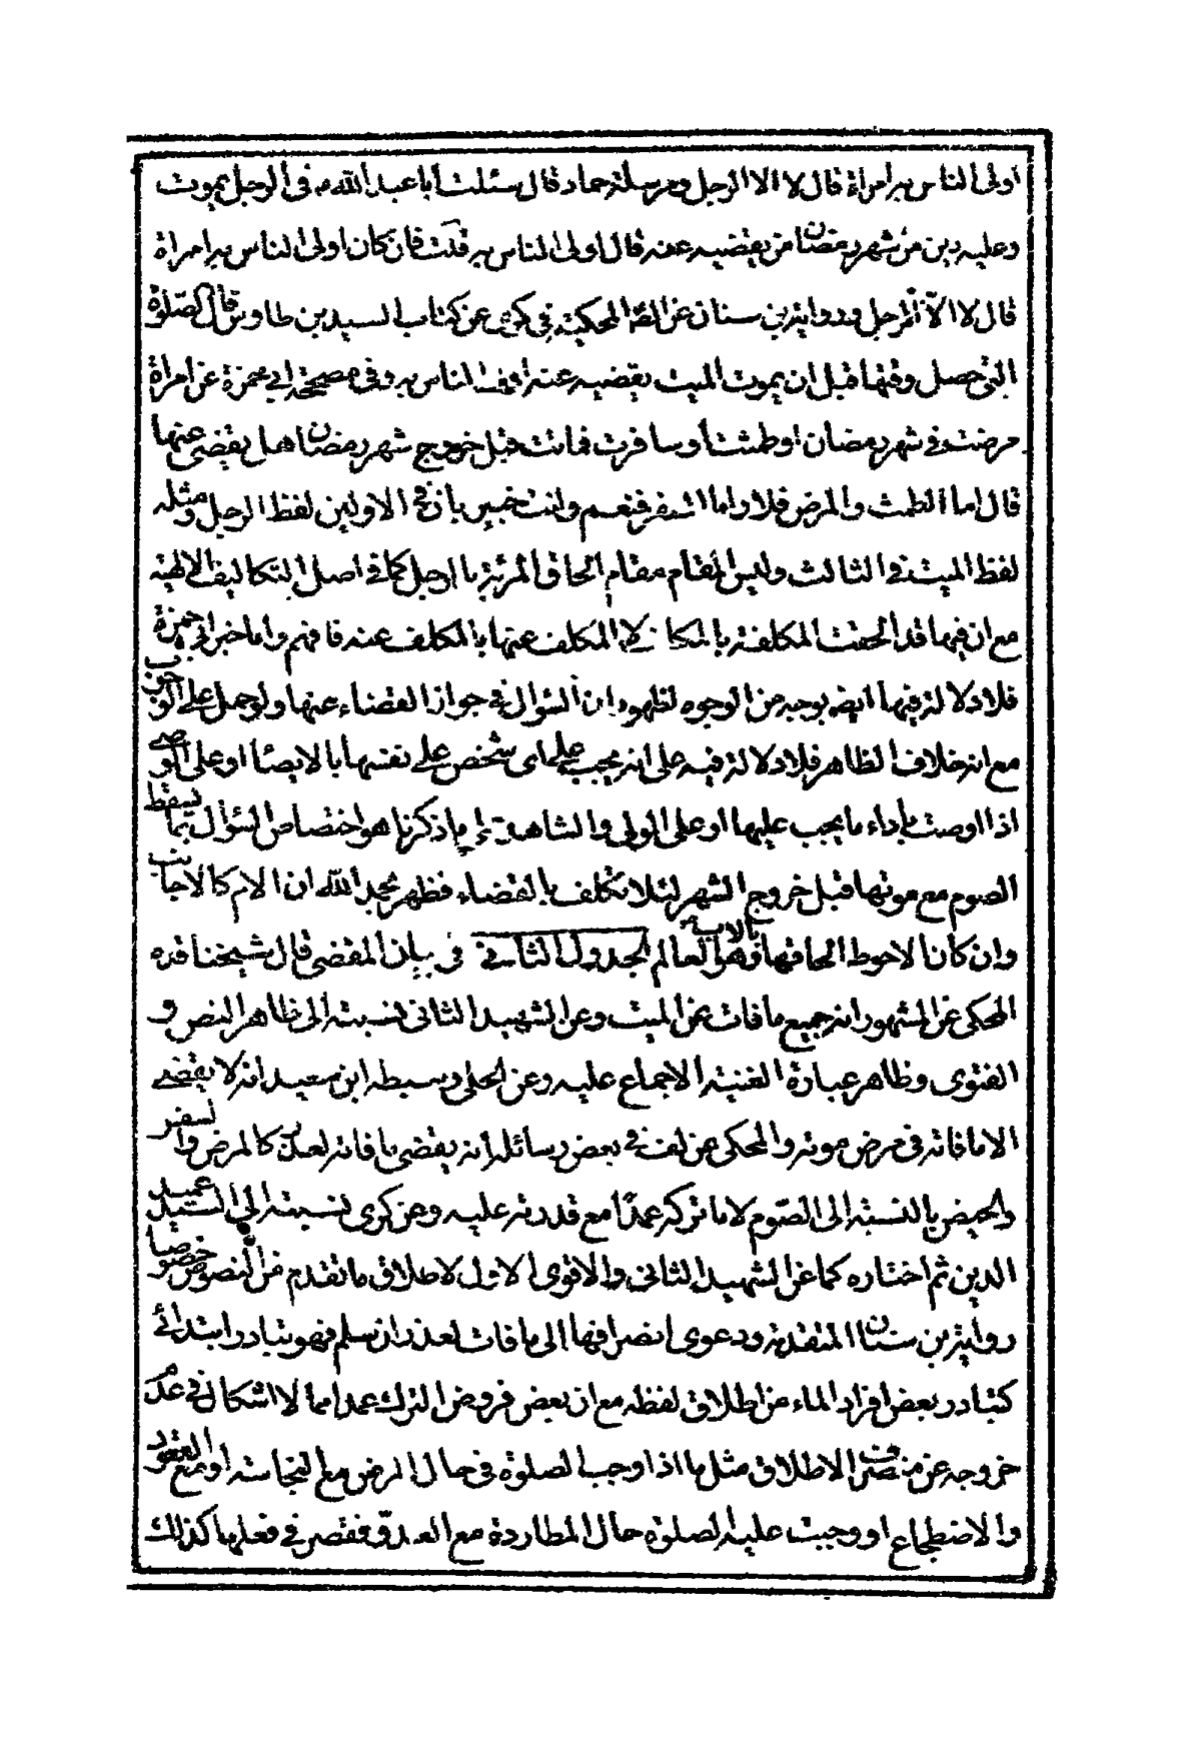 اولى الناس به امراة قال لا الا الرجل ومرسلة حماد قال سئلت ابا عبد الله ع فى الرجل يموت
وعليه دين من شهر رمضان من يقضيه عنه قال اولى الناس به قلت فان كان اولى الناس به امراة
قال لا الّا الرجل ورواية بن سنان عن الصّ المحكية في كرى عن كتاب السيد بن طاوس قال الصّلوة
التي حصل وقتها قبل ان يموت الميت يقضيه عنه اولى الناس به وفى صحيحة ابي حمزة عن امراة
مرضت في شهر رمضان او طمثت او سافرت فماتت قبل خروج شهر رمضان هل يقضى عنها
قال اما الطمث والمرض فلا واما السفر فنعم وانت خبير بان في الاولين لفظ الرجل ومثله
لفظ الميت في الثالث وليس المقام مقام الحاق المرئة بالرجل كما في اصل التكاليف الالهية
مع ان فيها قد الحقت المكلفة بالمكلف لا المكلف عنها بالمكلف عنه فافهم واما خبر ابي حمزة
فلا دلالة فيها ايضه بوجه من الوجوه لظهور ان السؤال في جواز القضاء عنها ولو حمل على الوجوب
مع انه خلاف الظاهر فلا دلالة فيه على انه يجب على اى شخص على نفسها بالايصاء او على الوصي
اذا اوصت باداء ما يجب عليها او على الولي والشاهد على ما ذكرنا هو اختصاص السؤال بما يسقط
الصوم مع موتها قبل خروج الشهر لئلا تكلف بالقضاء فظهر بحمد الله ان الام كالاجانب
وان كان الاحوط الحاقها بالاب وهو العالم الجدول الثاني فى بيان المقضى قال شيخنا قده
المحكى عن المشهور انه جميع ما فات عن الميت وعن الشهيد الثانى نسبته الى ظاهر النص و
الفتوى وظاهر عبارة الغنية الاجماع عليه وعن الحلى وسبطه ابن سعيد انه لا يقضي
الا ما فاته فى مرض موته والمحكى عن لف في بعض رسائله انه يقضى ما فاته لعذر كالمرض والسفر
والحيض بالنسبة الى الصّوم لا ما تركه عمدًا مع قدرته عليه وعن كرى نسبته الى السيد عميد
الدين ثم اختاره كما عن الشهيد الثانى والاقوى الاول لاطلاق ما تقدم من النصوص خصوصا
رواية بن سنان المتقدمة ودعوى انصرافها الى ما فات لعذر ان سلم فهو تبادر ابتدائي
كتبادر بعض افراد الماء من اطلاق لفظه مع ان بعض فروض الترك عمدا مما لا اشكال في عدم
خروجه عن منصرف الاطلاق مثل ما اذا وجب الصلوة فى حال المرض مع النجاسة او مع القعود
والاضطجاع او وجبت عليه الصلوة حال المطاردة مع العدوّ فقصر في فعلها كذلك